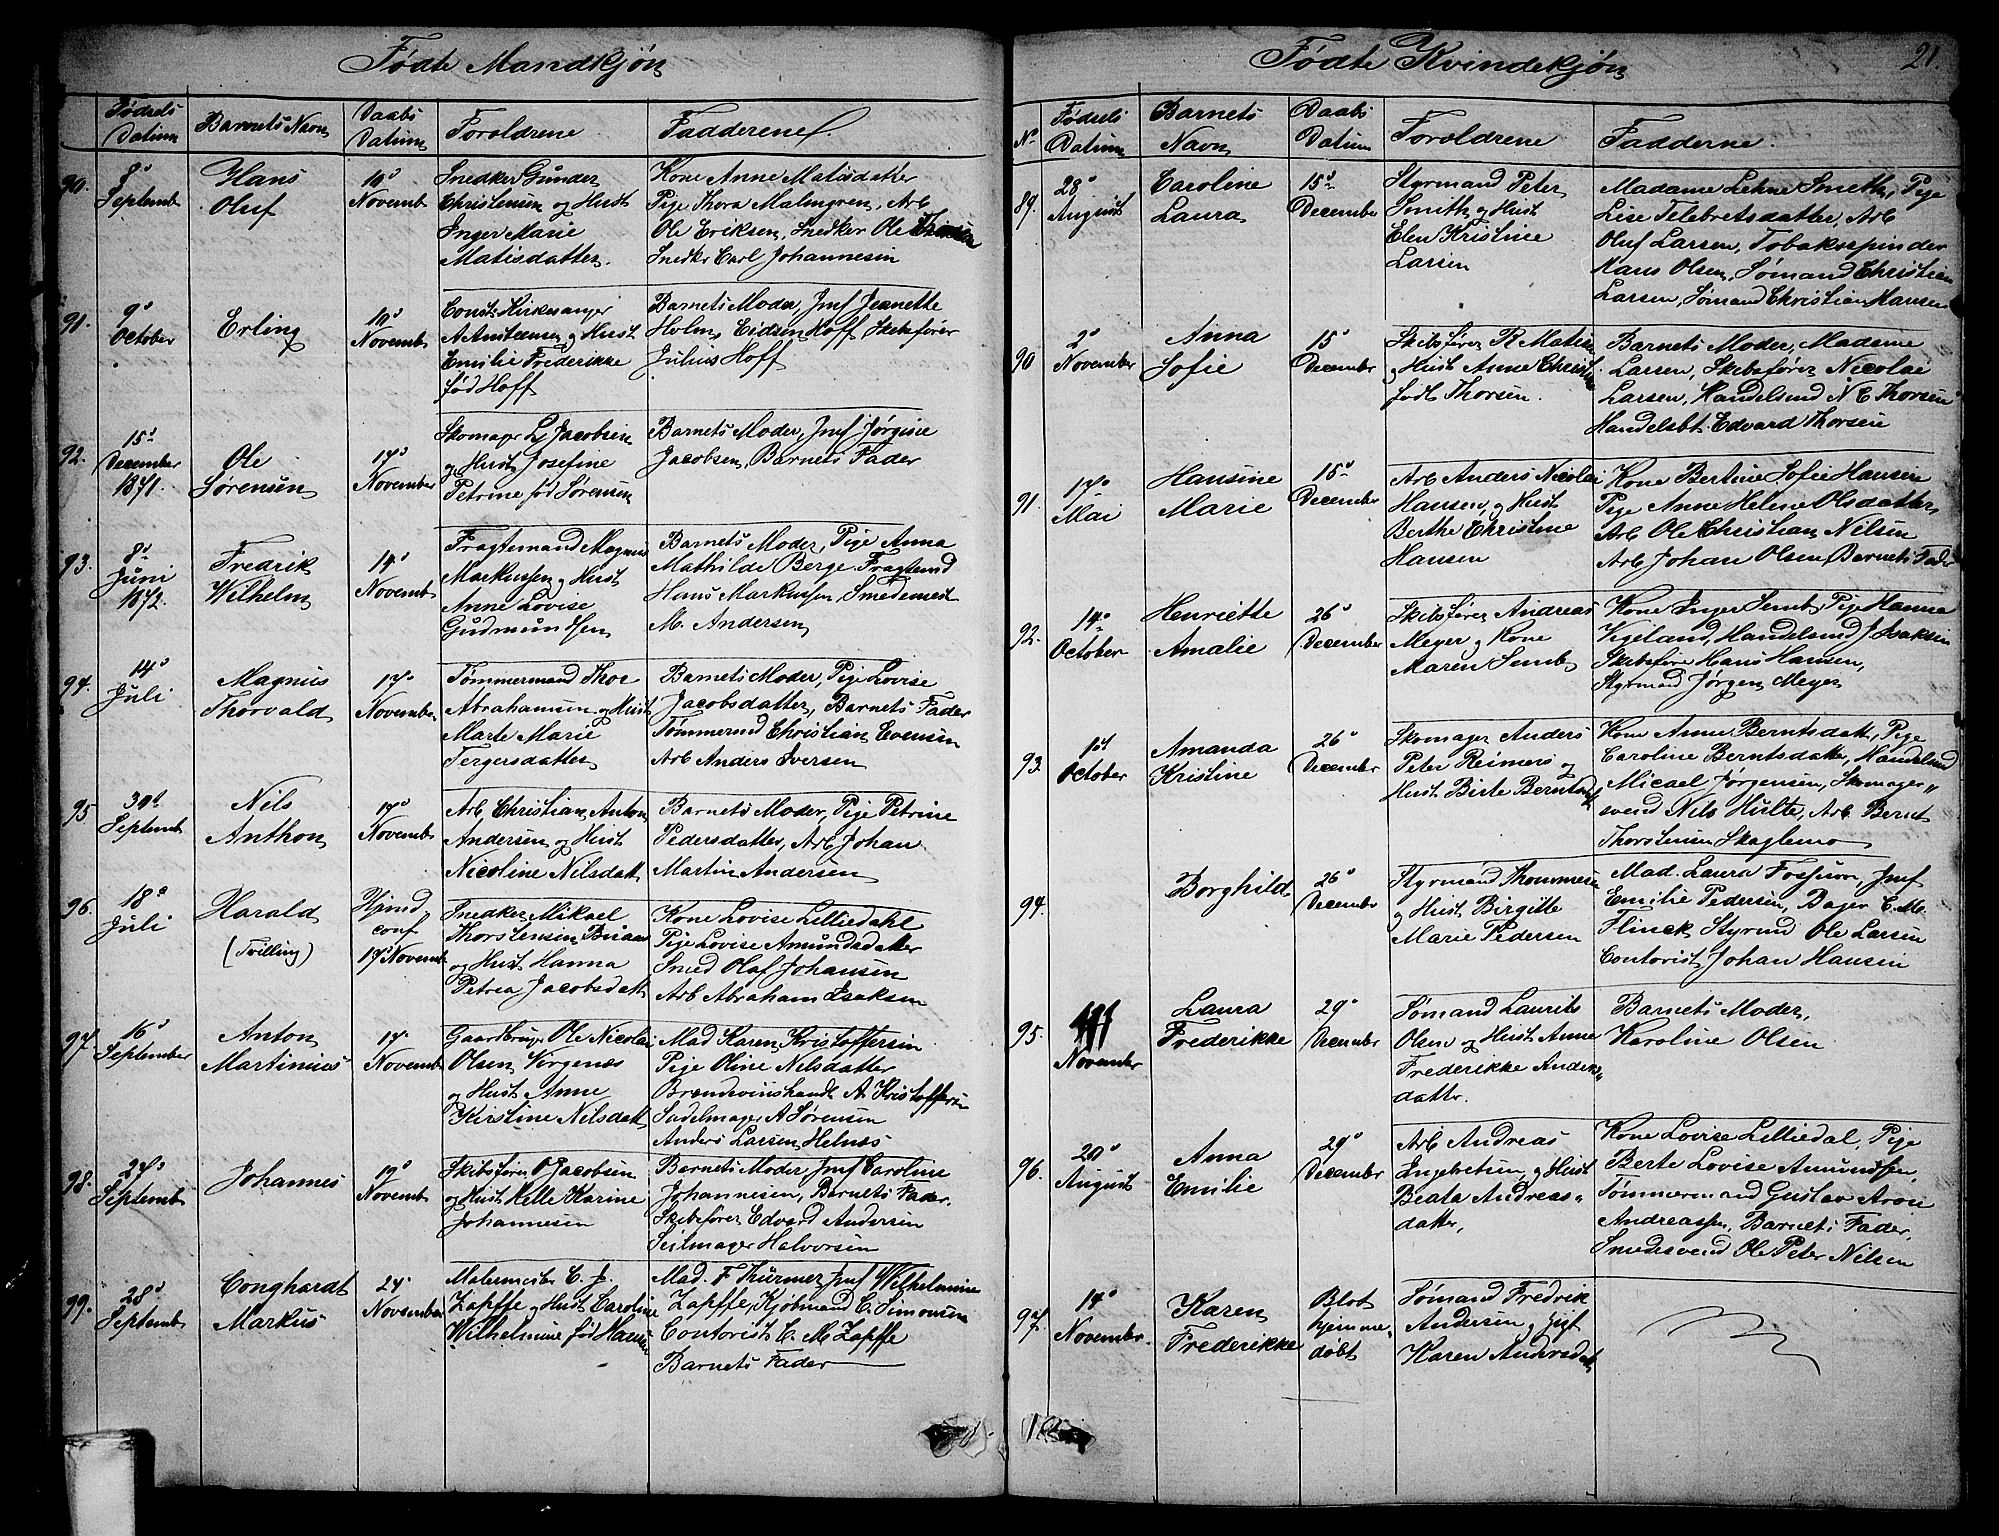 Fødte Mandkjøn
Fødsels Datum
Barnets Navn
Daabs Datum
Forældrene
Fadderene
90.
8de Septemb
Hans
Oluf
10de Novemb
Snedker Gunder
Christensen og Hust
Inger Marie
Matisdatter.
Kone Anne Matisdatter
Pige Thora Malmgren, Arb
Ole Eriksen, Snedker Ole
Snedkr Carl Johannesen
91.
9de October
Erling
10de Novemb
Const. Kirkesanger
A Anstensen og Hust
Emilie Frederikke
fød Hoff
Barnets Moder, Jmf Jeanette
Holm, Eidsen Hoff, Skibsfører
Julius Hoff
92.
15de December 1871.
Ole
Sørensen
17de November
Skomager L Jacobsen
og Hust Josefine
Petrine fød Sørensen
Barnets Moder, Jmf Jørgine
Jacobsen, Barnets Fader
93.
8de Juni 1872.
Fredrik
Wilhelm
17de Novemb
Fragtemand Magnus
Markussen og Hust
Anne Lovise
Gudmundsen
Barnets Moder, Pige Anna
Mathilde Berge Fragtemd
Hans Markussen, Smedemest
M. Andersen
94.
14de Juli
Magnus
Thorvald
17de November
Tømmermand Thor
Abrahamsen og Hust
Marte Marie
Tergersdatter
Barnets Moder, Pige Lovise
Jacobsdatter, Barnets Fader
Tømmermd Christian Evensen
Arb Anders Iversen
95
30de Septemb
Nils
Anthon
17de Novemb
Arb, Christian Anton
Andersen og Hust
Nicoline Nilsdatt
Barnets Moder, Pige Petrine
Pedersdatter, Arb Johan
Martin Andersen
96.
18de Juli
Harald
(Tvilling)
Hjemd
conf
17de Novemb
Snedker Mikael
Thorstensen
og Hust Hanna
Petrea Jacobsdatt
Kone Lovise Lilliedahl
Pige Lovise Amundsdatter
Smed Olaf Johansen
Arb Abraham Isaksen
97.
16de September
Anton
Martinius
17de Novemb
Gaardbruger Ole Nicolai
Olsen Virgenæs
og Hust Anne
Kristine Nilsdatt
Mad Karen Kristoffersen
Pige Oline Nilsdatter
Brændeviinshandl A Kristoffersen
Sadelmager A Sørensen
Anders Larsen Helnæs
98.
27de Septemb
Johannes
19de Novemb
Skibsfører O Jacobsen
og Hust Helle Karine
Johannesen
Barnets Moder Jmf Caroline
Johannesen, Barnets Fader.
Skibsfører Edvard Andersen
Seilmager Halvorsen
99.
28de Septemb
Conghardt
Markus
24. November
Malermester C. J.
Zapffe og Hust Caroline
Wilhelmine fød Hansen
Mad. F Thürmer, Jmf Wilhelmine
Zapffe, Kjøbmand C. Simonsen
Contorist C. M. Zapffe
Barnets Fader
Fødte Kvindekjøn
21.
No
Fødsels Datum
Barnets Navn
Daabs Datum
Forældrene
Fadderne.
89.
28de August
Caroline
Laura
15de December
Styrmand Peter
Smith og Hust
Elen Kristine
Larsen
Madame Lehne Smith, Pige
Lise Telebretsdatter, Arb
Oluf Larsen, Tobaksspinder
Hans Olsen, Sømand Christian
Larsen, Sømand Christian Hansen
90
2de November
Anna
Sofie
15de December
Skibsfører R Matisen
og Hust Anne Christine
født Thorsen.
Barnets Moder, Madame
Larsen, Skibsfører Nicolai
Larsen, Handelsmd N C Thorsen
Handelsbt. Edvard Thorsen
91.
17de Mai
Hansine
Marie
15de December
Arb Anders Nicolai
Hansen, og Hust
Berthe Christine
Hansen
Kone Bertine Sofie Hansen
Pige Anne Helene Olsdatter
Arb Ole Christian Nilsen
Arb Johan Olsen, Barnets Fader
92.
14de October
Henriette
Amalie
26de December
Skibsfører Andreas
Meyer og Kone
Maren Semb
Kone Inger Semb, Pige Hanna
Vigeland, Handelsmd J. Isaksen
Skibsfører Hans Hansen,
Styrmand Jørgen Meyer
93.
1st October
Amanda
Kristine
26de December
Skomager Anders
Peter Reimers og
Hust Birte Berntsdtr
Kone Anne Berntsdatt, Pige
Caroline Berntsdatter, Handelsmd
Micael Jørgensen, Skomager„
svend Nils Hulte, Arb. Bernt
Thorstensen Skaglemo
94.
Borghild
26de December
Styrmand Thommesen
og Hust Birgitte
Marie Pedersen
Mad. Laura Fossum, Jmf
Emilie Pedersen, Bager C. M.
Flinck Styrmd Ole Larsen
Contorist Johan Hansen
95.
November
Laura
Frederikke
29de December
Sømand Laurits
Olsen og Hust Anne
Frederikke Anders„
datter.
Barnets Moder,
Karoline Olsen
96.
20de August
Anna
Emilie
29de December
Arb Andreas
Ingebretsen og Hust
Beata Andreas„
datter,
Kone Lovise Lilliedal, Pige
Berte Lovise Amundsen,
Tømmermand Gustav Aron
Andreassen, Barnets Fader,
Smedesvend Ole Peter Nilsen
97.
14de November.
Karen
Frederikke
Blot
hjemme„
døbt
Sømand Fredrik
Andersen og Gift
Karen Andersdat